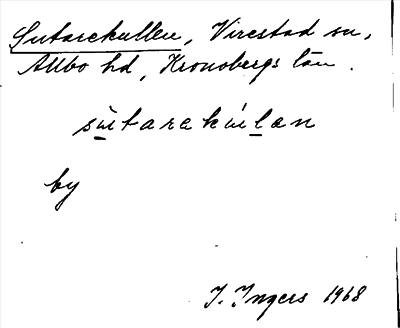 Sutarekullen, Virestad sn,
Allbo hd, Kronobergs län.
sùtarekúlen
by
I. Ingers 1968